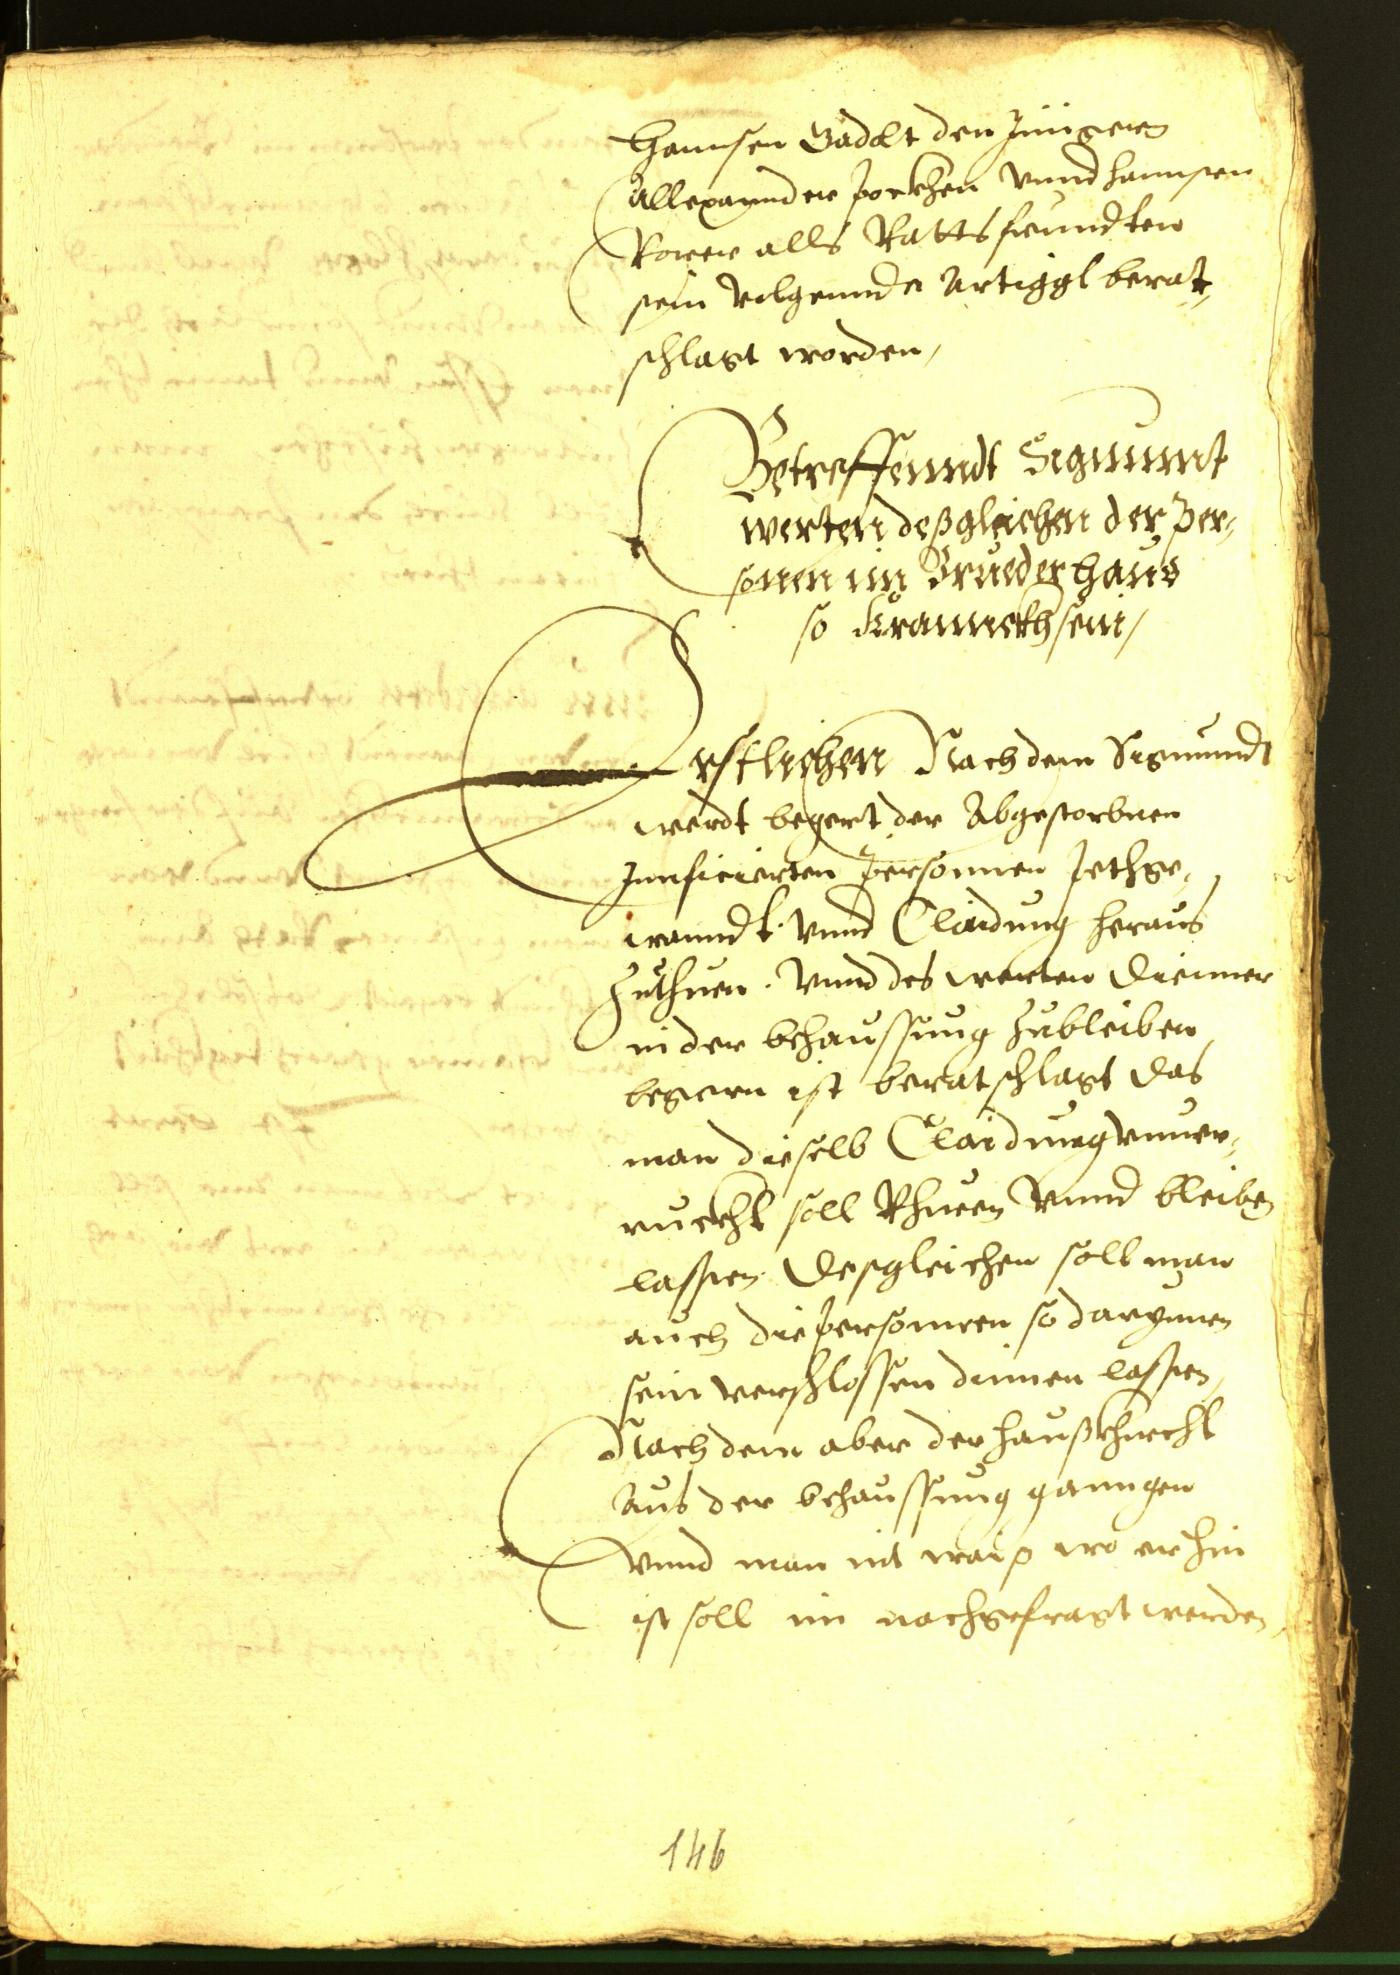 Hannsen Gadolt den Jüngern
Allexannder Jöchlen vnnd Hannsen
Korer alls Rattsfreundten
sein volgennde Artiggl berat¬
schlagt worden,
Betreffenndt Sigmunt
werten deßgleichen der Per¬
sonen im Bruederhaus
so Kranckh sein,
Erstlichen Nach dem Sigmundt
werdt begert der Abgestorbnen
Innficierten Personnen Pethge¬
wanndt vnnd Claidung heraus
zuthuen. vnnd des werten Diennner
in der behaussung zubleiben
begern ist beratschlagt das
man dieselb Claidung vnuer¬
ruckht soll Rhuen vnnd bleiben
lassen, Desgleichen soll man
auch die Personnen so darynnen
sein verschlossen dinnen lassen,
Nach dem aber der Haußkhnecht
aus der behaussung ganngen
vnnd man nit waiß wo er hin
ist soll im nachgefragt werden,
146